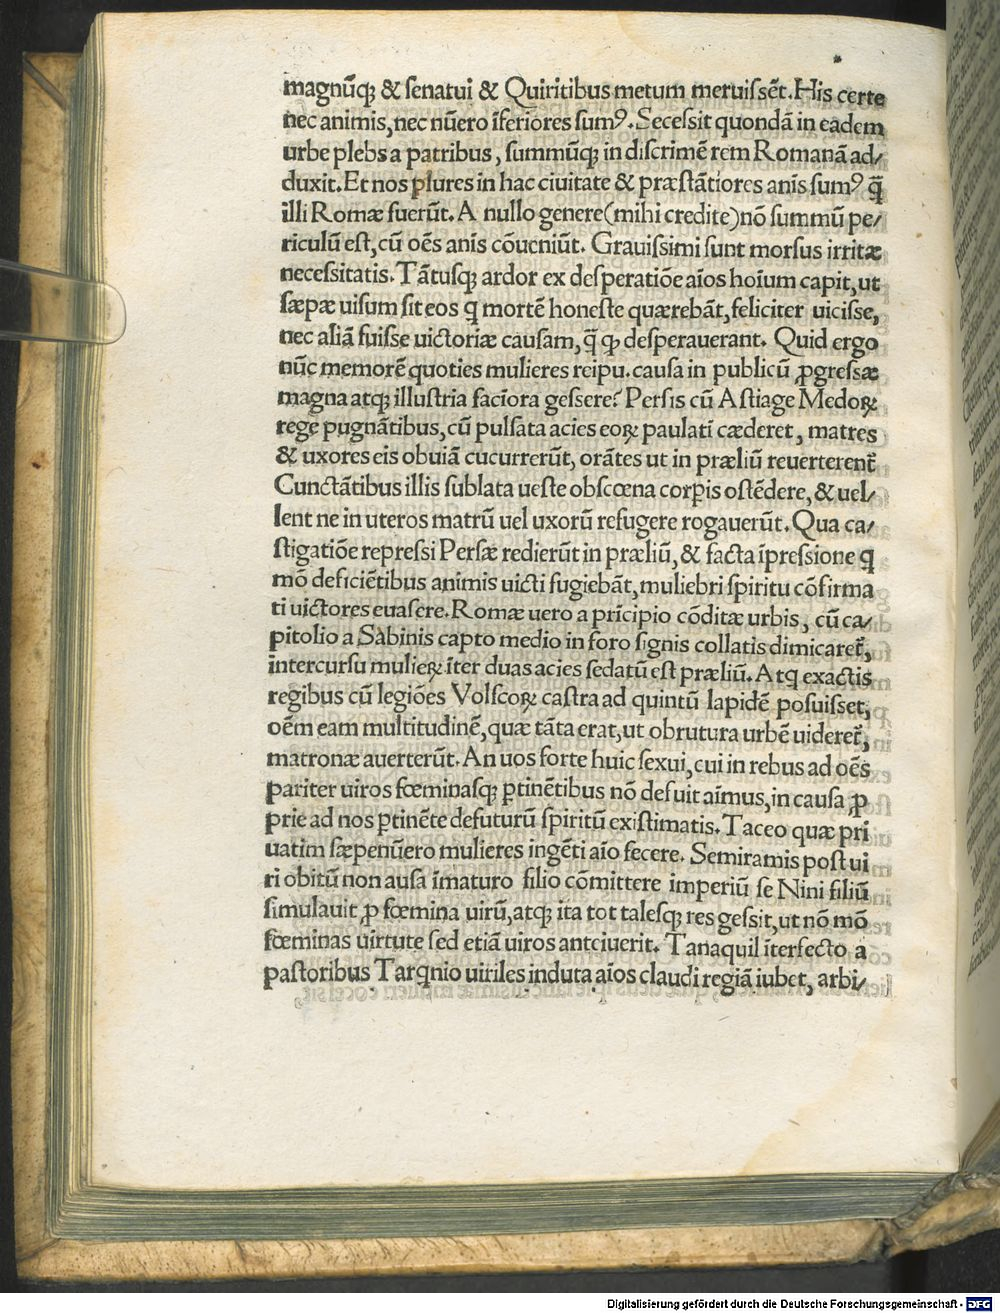 magnūq; & ſenatui & Quiritibus metum meruiſſēt. His certe
nec animis, nec nūero īferiores ſumꝰ. Seceſſit quondā in eadem
urbe plebs a patribus, ſummūq; in diſcrimē rem Romanā ad/
duxit. Et nos plures in hac ciuitate & præſtātiores anīs ſumꝰ q̄
illi Romæ fuerūt. A nullo genere (mihi credite) nō ſummū pe/
riculū eſt, cū oēs anīs cōueniūt. Grauiſſimi ſunt morſus irritæ
neceſſitatis. Tātuſq; ardor ex deſperatiōe aīos hoīum capit, ut
ſæpæ uiſum ſit eos q mortē honeſte quærebāt, feliciter uiciſſe,
nec aliā fuiſſe uictoriæ cauſam, q̄ ꝙ deſperauerant. Quid ergo
nūc memorē quoties mulieres reipu. cauſa in publicū ꝓgreſſæ
magna atq; illuſtria faciora geſſere? Perſis cū Aſtiage Medoꝝ
rege pugnātibus, cū pulſata acies eoꝝ paulatī cæderet, matres
& uxores eis obuiā cucurrerūt, orātes ut in præliū reuerterent᷑
Cunctātibus illis ſublata ueſte obſcœna corꝑis oſtēdere, & uel/
lent ne in uteros matrū uel uxorū refugere rogauerūt. Qua ca/
ſtigatiōe repreſſi Perſæ redierūt in præliū, & facta īpreſſione q
mō deficiētibus animis uicti fugiebāt, muliebri ſpiritu cōfirma
ti uictores euaſere. Romæ uero a prīcipio cōditæ urbis, cū ca/
pitolio a Sabinis capto medio in foro ſignis collatis dimicaret᷑,
intercurſu mulieꝝ īter duas acies ſedatū eſt præliū. Atq exactis
regibus cū legiōes Volſcoꝝ caſtra ad quintū lapidē poſuiſſet,
oēm eam multitudinē, quæ tāta erat, ut obrutura urbē uideret᷑,
matronæ auerterūt. An uos forte huic ſexui, cui in rebus ad oēs
pariter uiros fœminaſq; ꝑtinētibus nō defuit aīmus, in cauſa ꝓ
prie ad nos ꝑtinēte defuturū ſpiritū exiſtimatis. Taceo quæ pri
uatim ſæpenūero mulieres ingēti aīo fecere. Semiramis poſt ui
ri obitū non auſa īmaturo filio cōmittere imperiū ſe Nini filiū
ſimulauit ꝓ fœmina uirū, atq; ita tot taleſq; res geſſit, ut nō mō
fœminas uirtute ſed etiā uiros anteiuerit. Tanaquil īterfecto a
paſtoribus Tarqnio uiriles induta aīos claudi regiā iubet, arbi/
Digitalisierung gefördert durch die Deutsche Forschungsgemeinschaft - DFG